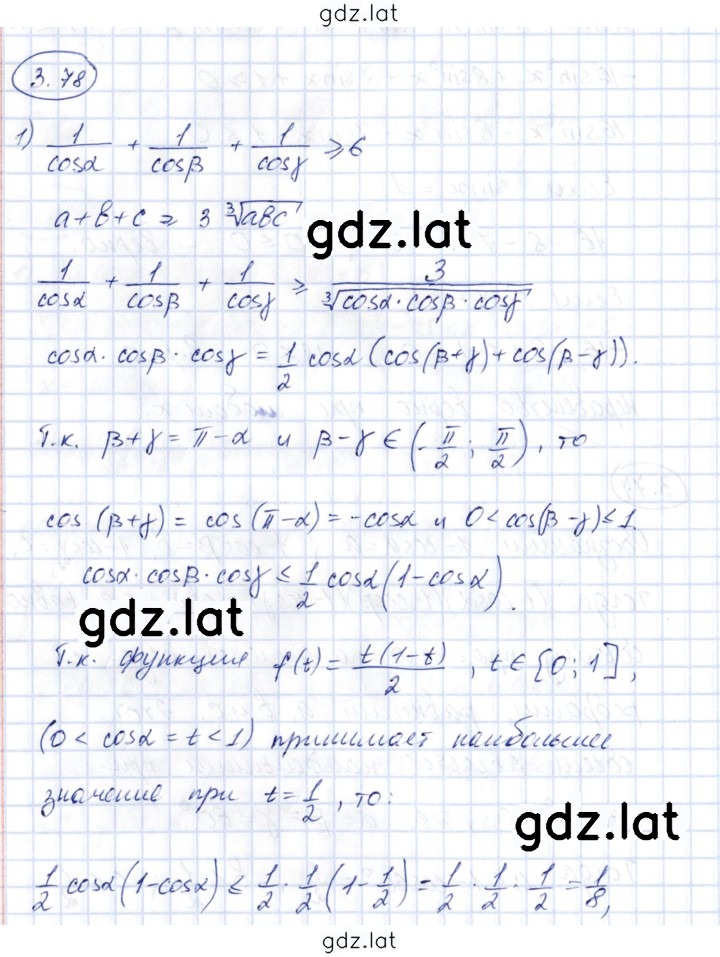 gdz.lat
3.78
1) 1/cosα + 1/cosβ + 1/cosγ ⩾ 6
a+b+c ⩾ 3 ∛abc
gdz.lat
1/cosα + 1/cosβ + 1/cosγ ⩾ 3/∛(cosα·cosβ·cosγ)
cosα·cosβ·cosγ = 1/2 cosα(cos(β+γ)+cos(β-γ)).
Т.к. β+γ = π-α и β-γ ∈ (-π/2; π/2), то
cos(β+γ) = cos(π-α) = -cosα и 0 < cos(β-γ) ≤ 1.
cosα·cosβ·cosγ ≤ 1/2 cosα(1-cosα).
gdz.lat
Т.к. функция f(t) = t(1-t)/2, t ∈ [0; 1],
(0 < cosα = t < 1) принимает наибольшее
значение при t = 1/2, то:
gdz.lat
1/2 cosα(1-cosα) ≤ 1/2 · 1/2 (1-1/2) = 1/2 · 1/2 · 1/2 = 1/8,
gdz.lat